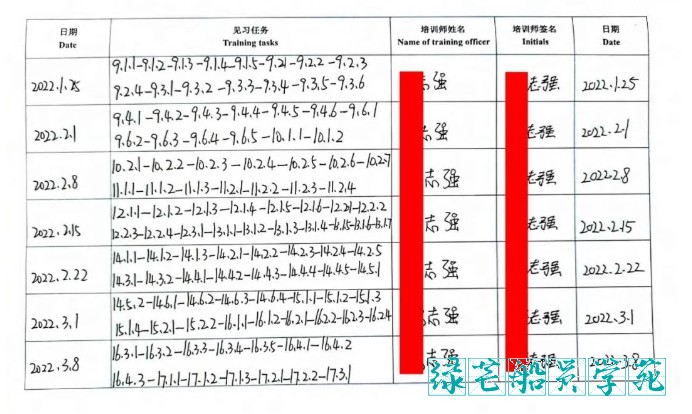 日期 见习任务 培训师姓名 培训师签名 日期
Date Training tasks Name of training officer Initials Date
9.1.1-9.1.2-9.1.3-9.1.4-9.1.5-9.2.1-9.2.2-9.2.3
2022.1.25 志强 志强 2022.1.25
9.2.4-9.3.1-9.3.2-9.3.3-9.3.4-9.3.5-9.3.6
9.4.1-9.4.2-9.4.3-9.4.4-9.4.5-9.4.6-9.6.1
2022.2.1 志强 志强 2022.2.1
9.6.2-9.6.3-9.6.4-9.6.5-10.1.1-10.1.2
10.2.1-10.2.2-10.2.3-10.2.4-10.2.5-10.2.6-10.2.7
2022.2.8 志强 志强 2022.2.8
11.1.1-11.1.2-11.1.3-11.2.1-11.2.2-11.2.3-11.2.4
12.1.1-12.1.2-12.1.3-12.1.4-12.1.5-12.1.6-12.2.1-12.2.2
2022.2.15 志强 志强 2022.2.15
12.2.3-12.2.4-12.3.1-13.1.1-13.1.2-13.1.3-13.1.4-13.1.5-13.1.6-13.1.7
14.1.1-14.1.2-14.1.3-14.2.1-14.2.2-14.2.3-14.2.4-14.2.5
2022.2.22 志强 志强 2022.2.22
14.3.1-14.3.2-14.4.1-14.4.2-14.4.3-14.4.4-14.4.5-14.5.1
14.5.2-14.6.1-14.6.2-14.6.3-14.6.4-15.1.1-15.1.2-15.1.3
2022.3.1 志强 志强 2022.3.1
15.1.4-15.2.1-15.2.2-16.1.1-16.1.2-16.2.1-16.2.2-16.2.3-16.2.4
16.3.1-16.3.2-16.3.3-16.3.4-16.3.5-16.4.1-16.4.2
2022.3.8 志强 志强 2022.3.8
16.4.3-17.1.1-17.1.2-17.1.3-17.2.1-17.2.2-17.3.1
绿芒船员学苑